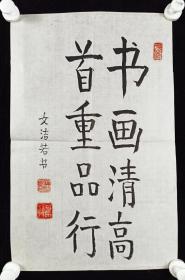 书画清高
首重品行
文洁若书